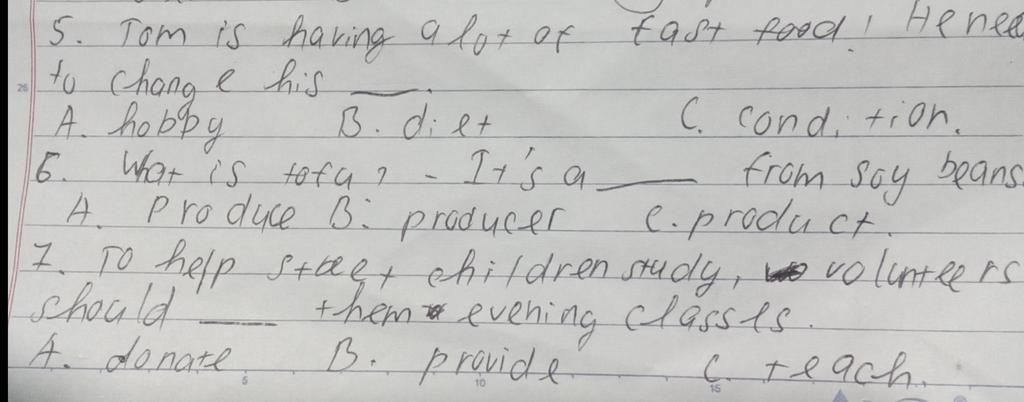 5. Tom is having a lot of fast food! He need
to change his ___.
A. hobby B. diet C. condition.
6. What is tofu? - It's a ___ from soy beans.
A. Produce B. producer C. product.
7. To help street children study, volunteers
should ___ them evening classes.
A. donate B. provide C. teach.